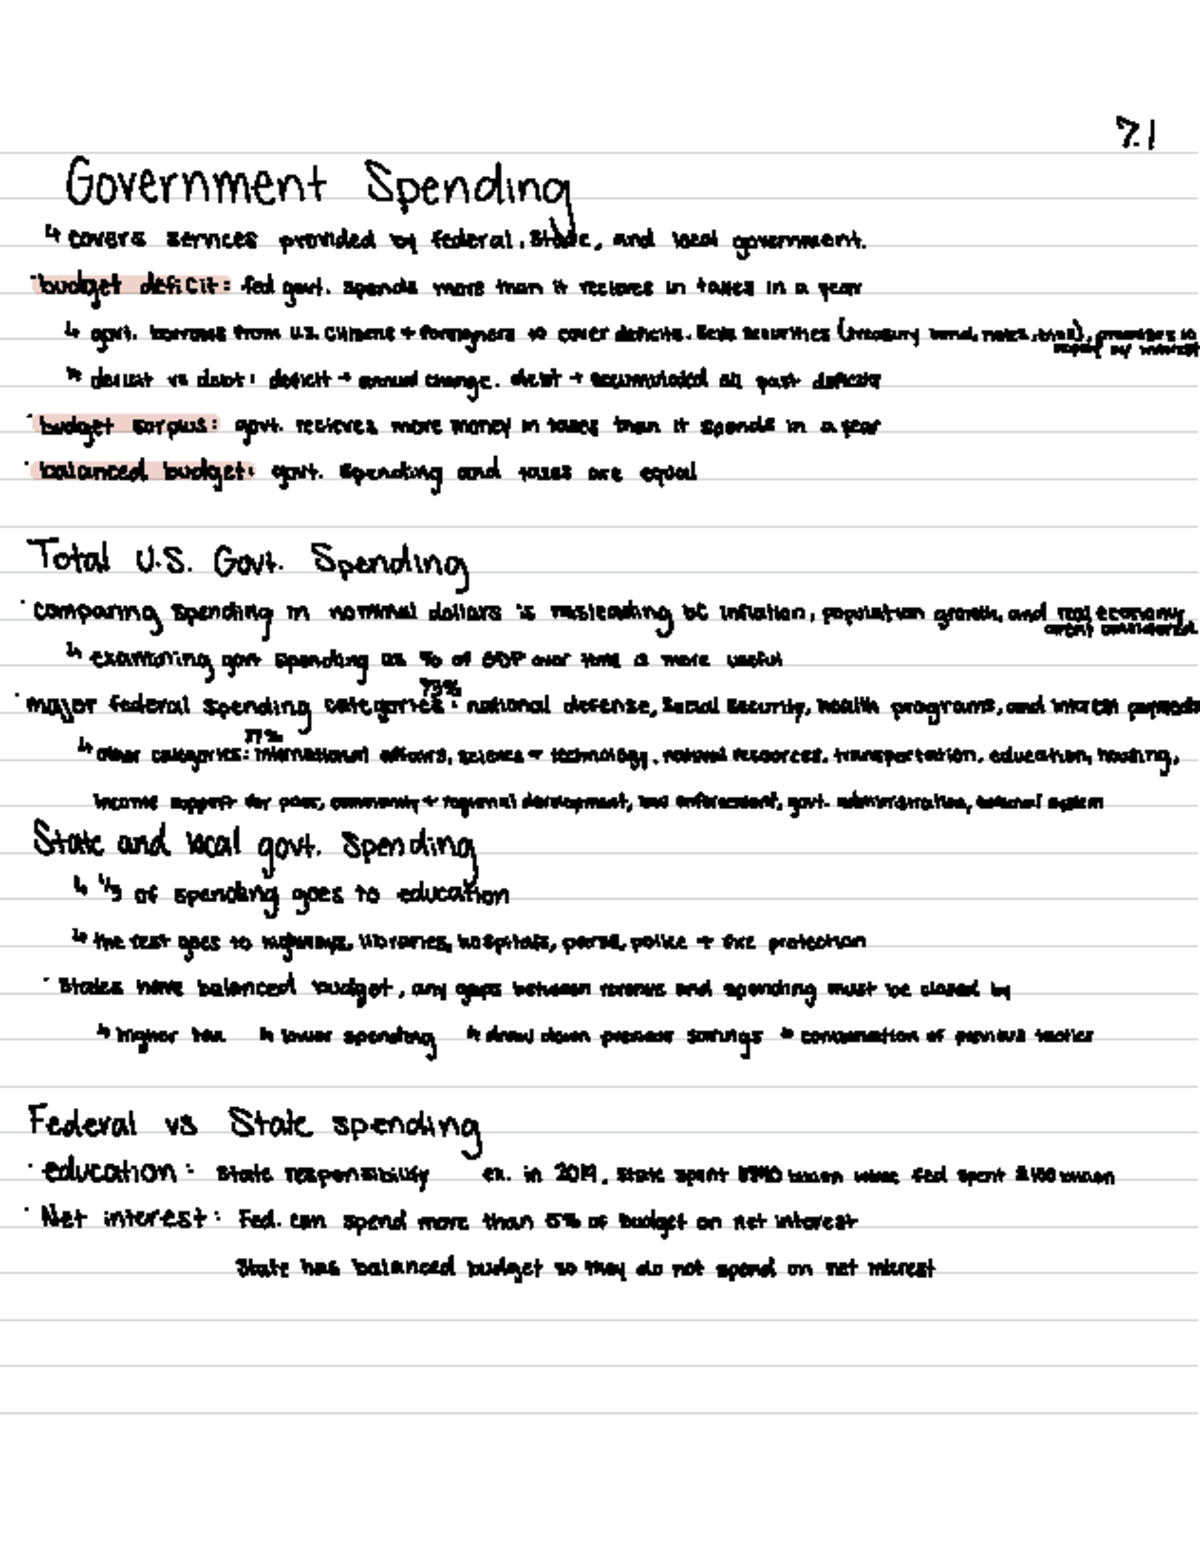 7.1
Government Spending
↳ covers services provided by federal, State, and local government.
· budget deficit: fed govt. spends more than it recieves in taxes in a year
↳ govt. borrows from U.S. citizens + foreigners to cover deficits. Sells securities (treasury bond, notes, bills), promises to
repay w/ interest
↳ deficit vs debt: deficit → annual change. debt → accumulated all past deficits
· budget surplus: govt. recieves more money in taxes than it spends in a year
· balanced budget: govt. spending and taxes are equal
Total U.S. Govt. Spending
· comparing spending in nominal dollars is misleading bc inflation, population growth, and real economy
arent considered
↳ examining govt spending as % of GDP over time is more useful
· major federal spending categories: national defense, Social Security, health programs, and interest payments
↳ other categories: international affairs, science + technology, natural resources, transportation, education, housing,
income support for poor, community + regional development, law enforcement, govt. administration, system
State and local govt. spending
↳ 1/3 of spending goes to education
↳ the rest goes to highways, libraries, hospitals, parks, police + fire protection
· States have balanced budget, any gaps between revenue and spending must be closed by
↳ higher tax ↳ lower spending ↳ draw down previous savings ↳ of previous tactics
Federal vs State spending
· education: State responsibility ex. in 2019, state spent billion while fed spent $100 billion
· Net interest: Fed. can spend more than 5% of budget on net interest
State has balanced budget so they do not spend on net interest